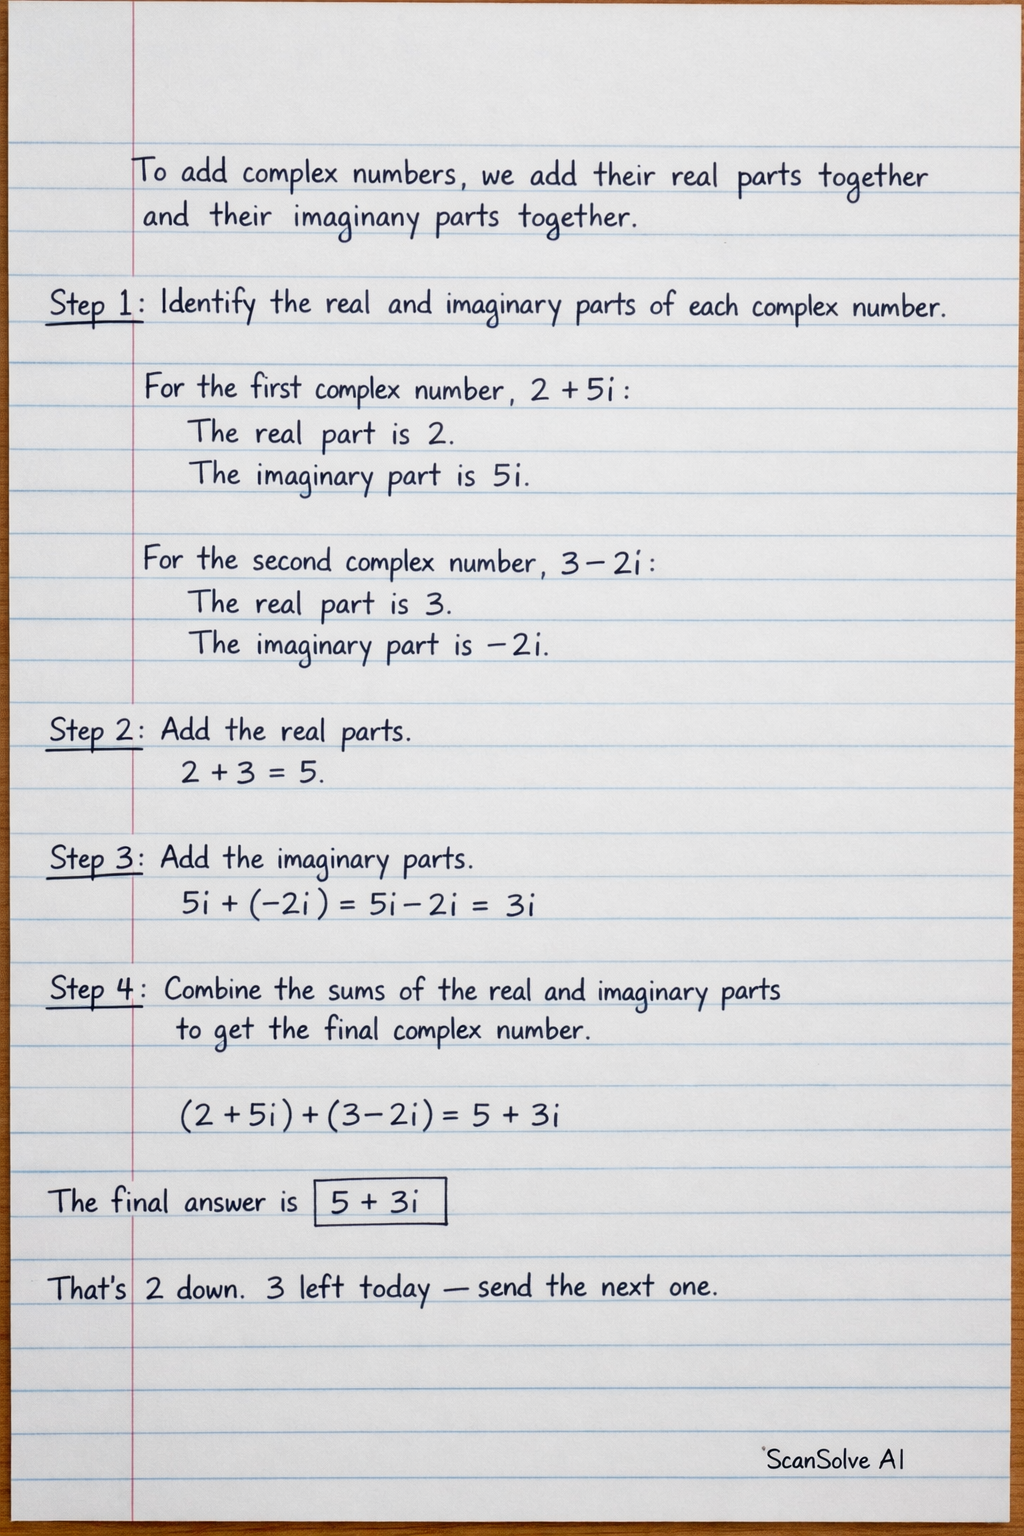 To add complex numbers, we add their real parts together
and their imaginany parts together.
Step 1: Identify the real and imaginary parts of each complex number.
For the first complex number, 2 + 5i:
The real part is 2.
The imaginary part is 5i.
For the second complex number, 3 − 2i:
The real part is 3.
The imaginary part is −2i.
Step 2: Add the real parts.
2 + 3 = 5.
Step 3: Add the imaginary parts.
5i + (−2i) = 5i − 2i = 3i
Step 4: Combine the sums of the real and imaginary parts
to get the final complex number.
(2 + 5i) + (3 − 2i) = 5 + 3i
The final answer is 5 + 3i
That's 2 down. 3 left today — send the next one.
ScanSolve AI